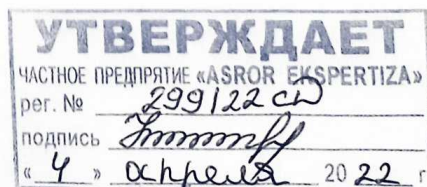 УТВЕРЖДАЕТ
ЧАСТНОЕ ПРЕДПРЯТИЕ «ASROR EKSPERTIZA»
рег. № 299/22 СД
подпись
« 4 » апреля 20 22 г